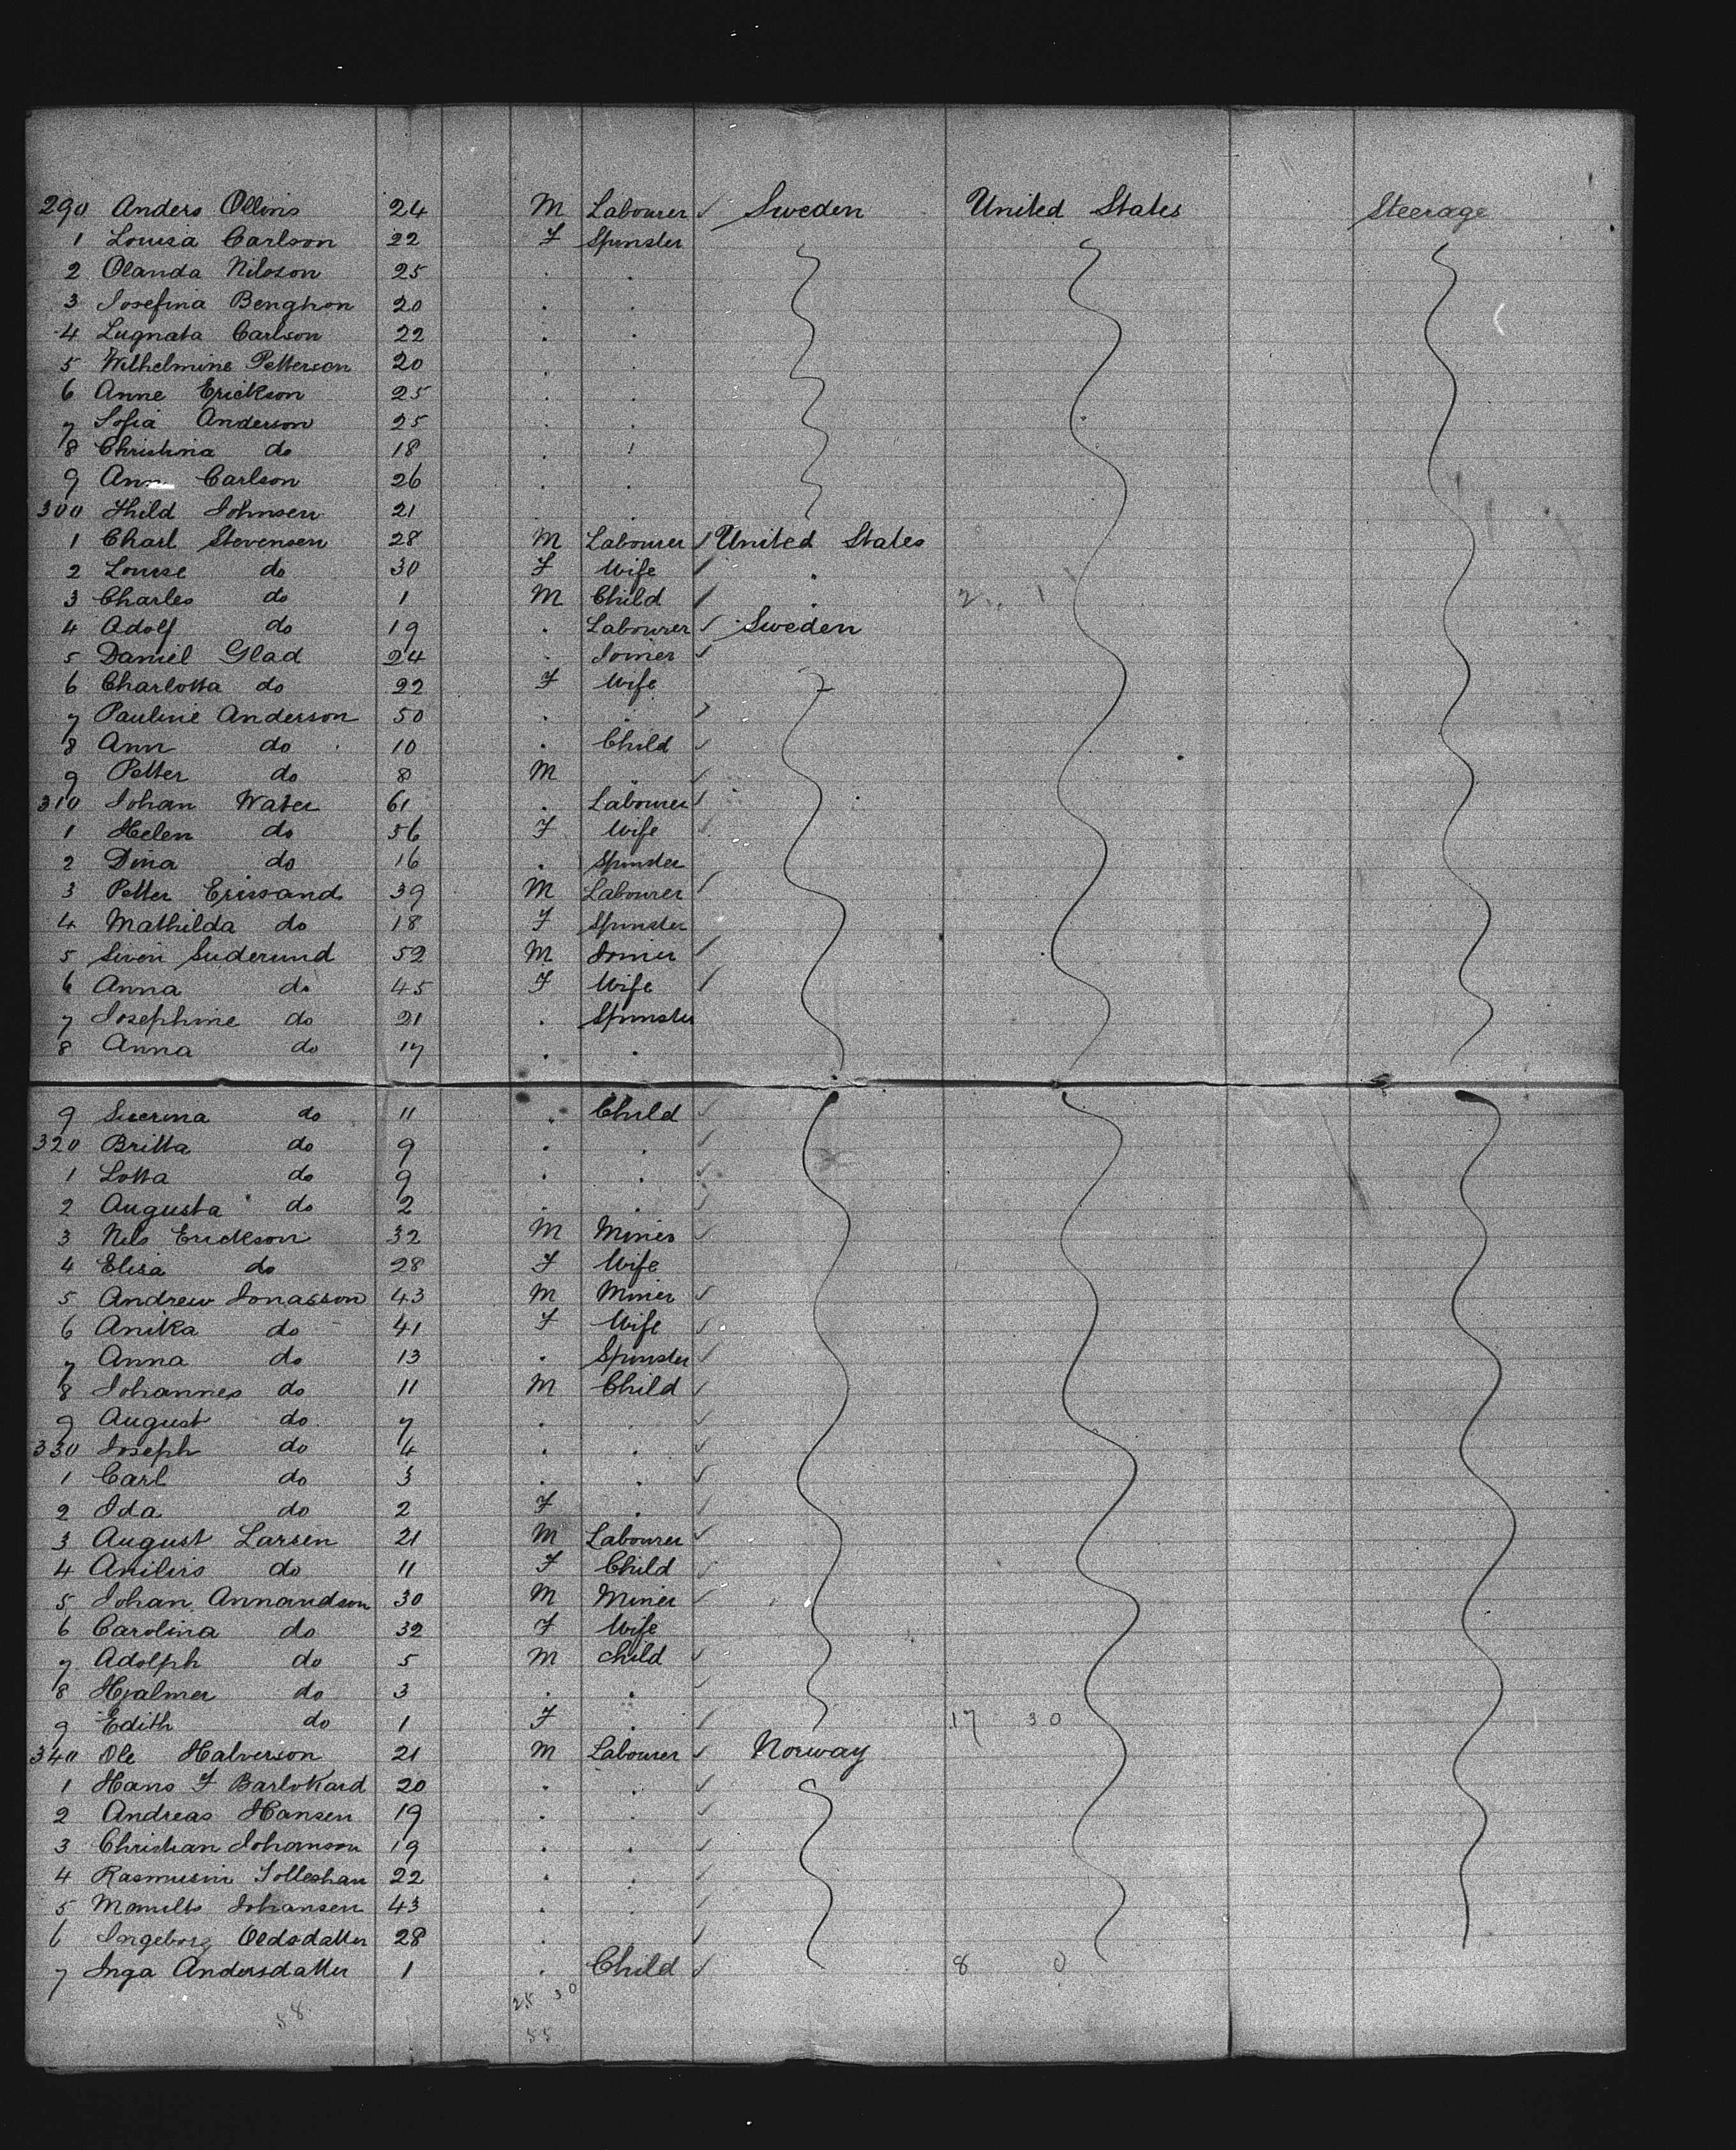 290 Anders Ollins 24 M Labourer ✓ Sweden United States Steerage
1 Louisa Carlson 22 F Spinster
2 Olanda Nilsson 25 . .
3 Josefina Benghon 20 . .
4 Lugnata Carlson 22 . .
5 Wilhelmine Petterson 20 . .
6 Anne Erickson 25 . .
7 Sofia Anderson 25 . .
8 Christina do 18 . .
9 Ann Carlson 26 . .
300 Hild Johnsen 21 .
1 Charl Stevensen 28 M Labourer ✓ United States
2 Louise do 30 F Wife ✓ .
3 Charles do 1 M Child ✓ . 2 1
4 Adolf do 19 . Labourer ✓ Sweden
5 Daniel Glad 24 . Joiner ✓
6 Charlotta do 22 F Wife
7 Pauline Anderson 50 . . ✓
8 Ann do 10 . Child ✓
9 Petter do 8 M . ✓
310 Johan Water 61 . Labourer ✓
1 Helen do 56 F Wife ✓
2 Dina do 16 . Spinster
3 Petter Erissand 39 M Labourer ✓
4 Mathilda do 18 F Spinster
5 Siven Suderund 52 M Joiner ✓
6 Anna do 45 F Wife ✓
7 Josephine do 21 . Spinster
8 Anna do 17 . .
9 do 11 . Child ✓
320 Britta do 9 . . ✓
1 Lotta do 9 . . ✓
2 Augusta do 2 . . ✓
3 Nils Erickson 32 M Miner ✓
4 Elisa do 28 F Wife
5 Andrew Jonasson 43 M Miner ✓
6 Anika do 41 F Wife ✓
7 Anna do 13 . Spinster ✓
8 Johannes do 11 M Child ✓
9 August do 7 . . ✓
330 Joseph do 4 . . ✓
1 Carl do 3 . . ✓
2 Ida do 2 F . ✓
3 August Larsen 21 M Labourer ✓
4 do 11 F Child ✓
5 Johan Annandson 30 M Miner ✓
6 Carolina do 32 F Wife
7 Adolph do 5 M Child ✓
8 Hjalmer do 3 . . ✓
9 Edith do 1 F . ✓ 17 30
340 Ole Halverson 21 M Labourer ✓ Norway
1 Hans F Barlokard 20 . . ✓
2 Andreas Hansen 19 . . ✓
3 Christian Johanson 19 . . ✓
4 Rasmusin Tolleshan 22 . . ✓
5 Johansen 43 . . ✓
6 Ingeborg Oldsdatter 28 . . ✓
7 Inga Andersdatter 1 . Child ✓ 8 0
58 25 30
55